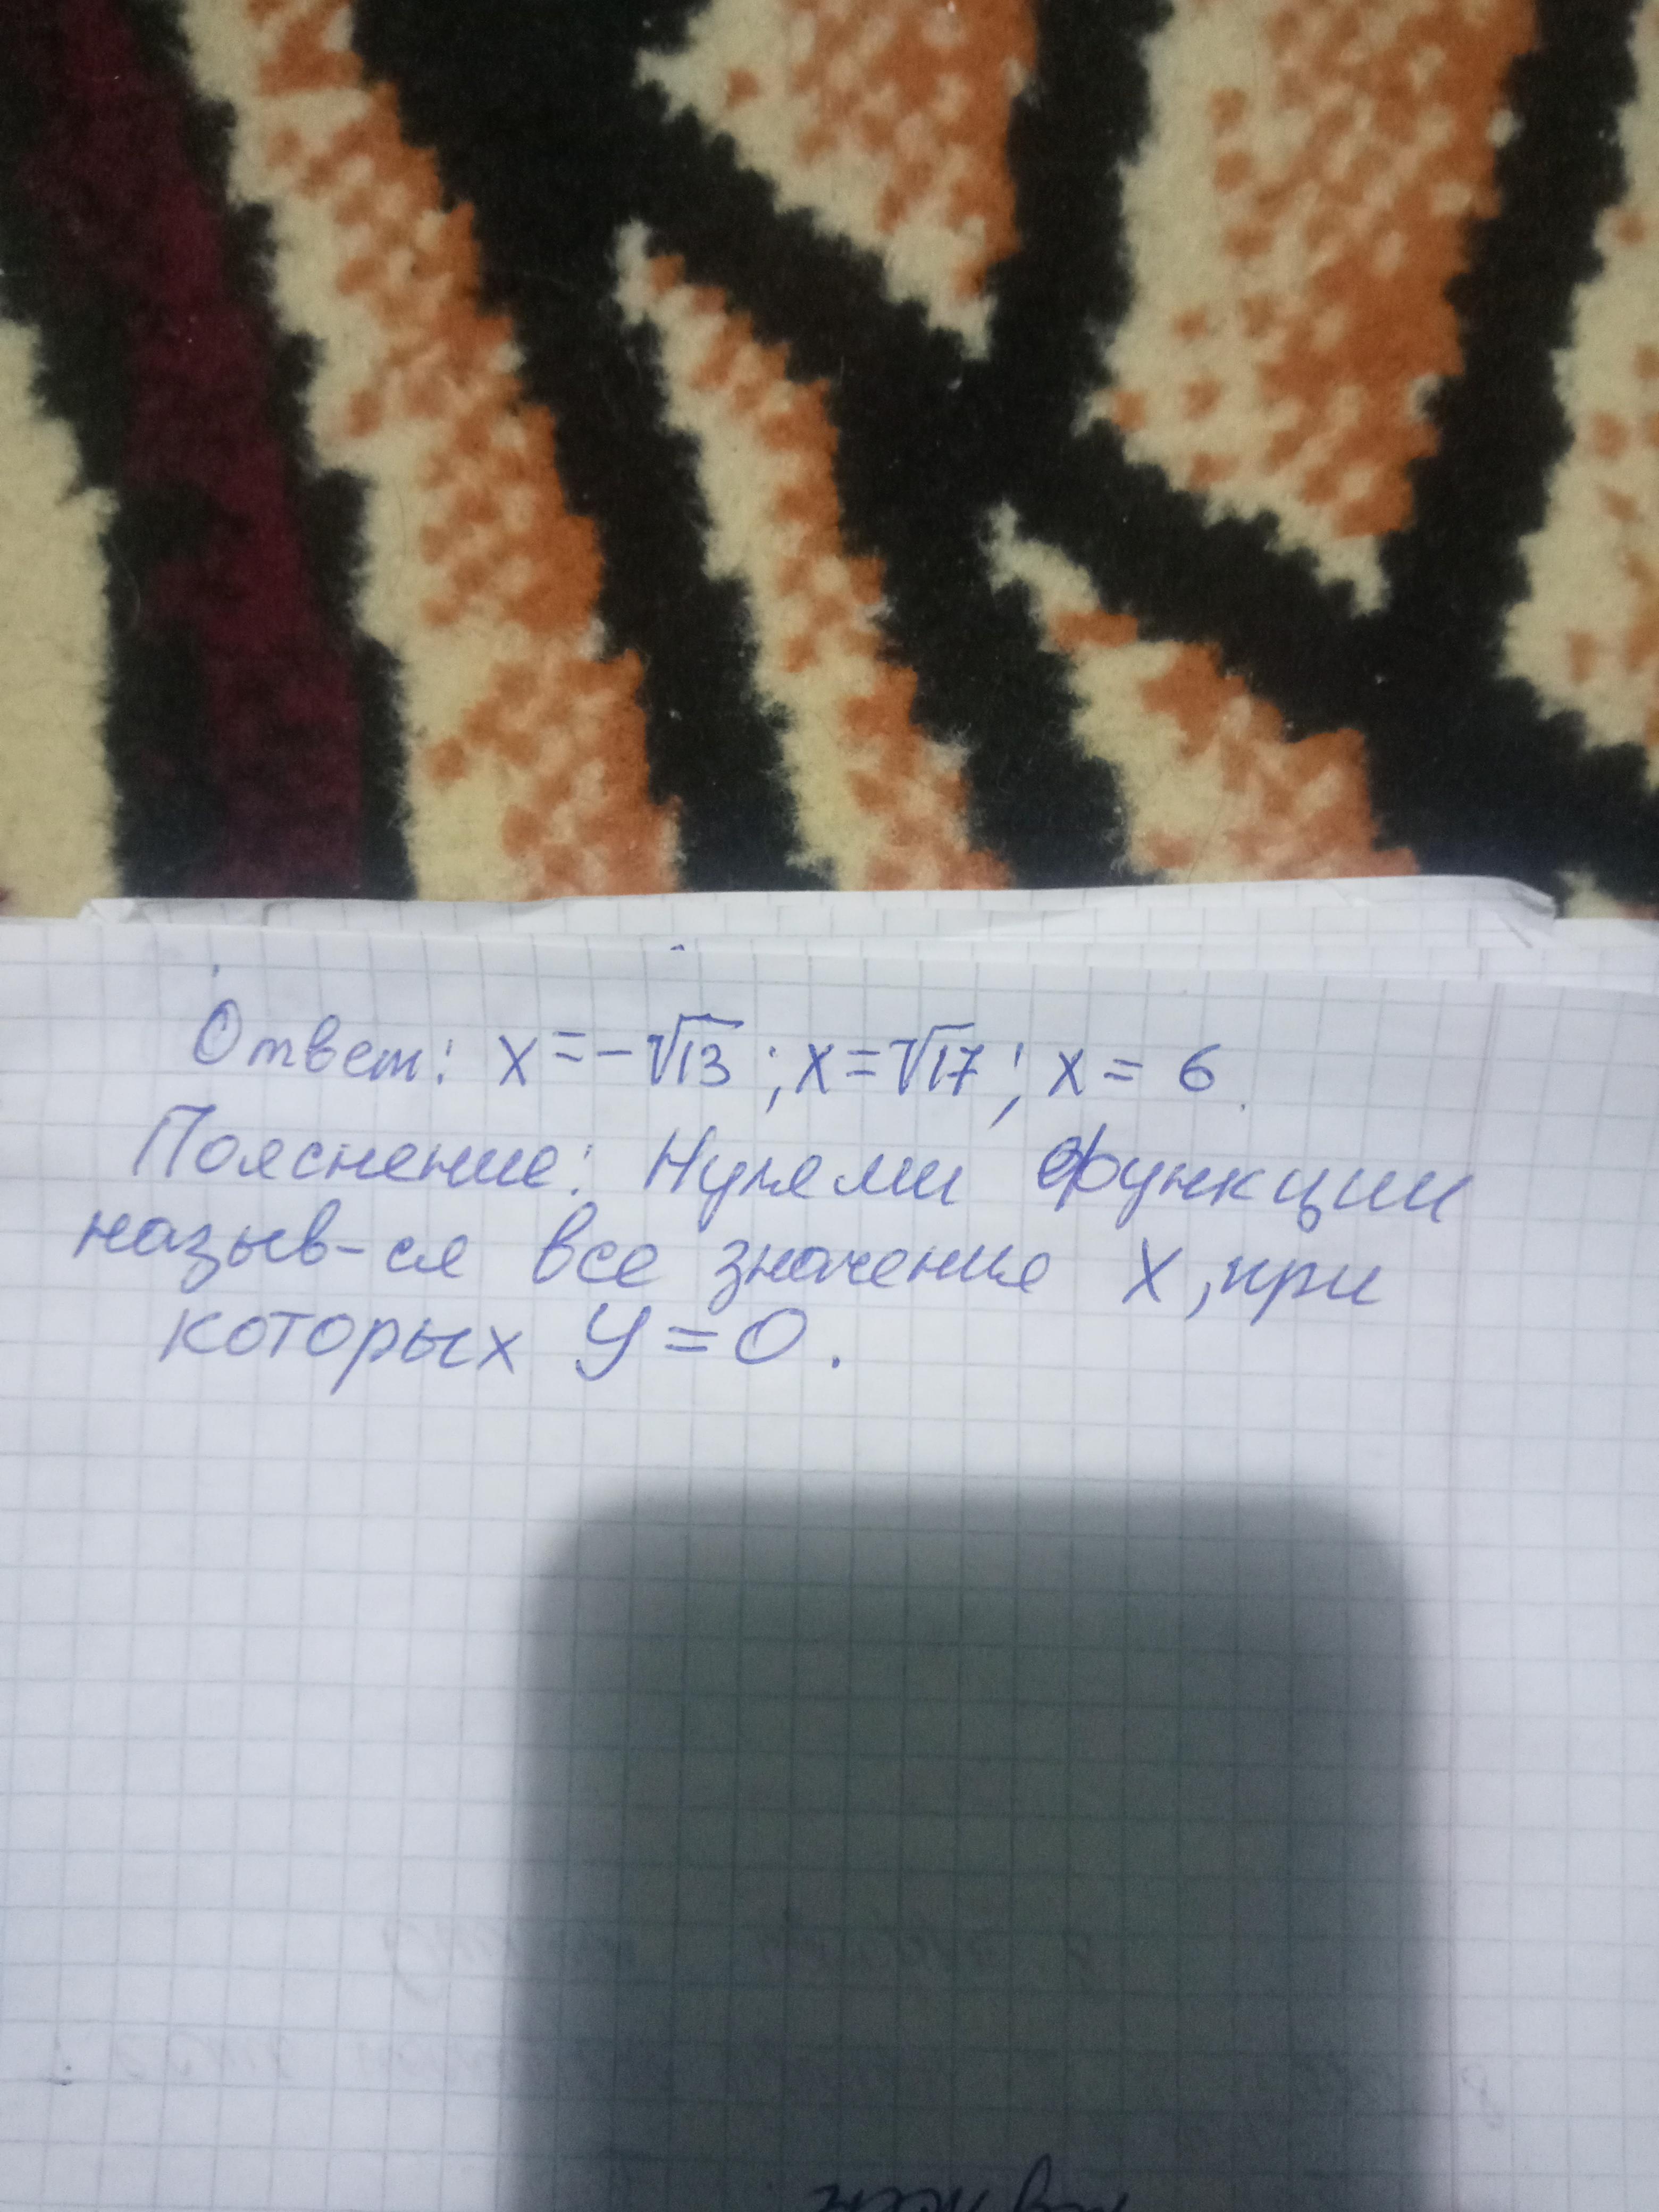 Ответ: x=-√13; x=√17; x=6.
Пояснение: Нулями функции
назыв-ся все значения X, при
которых y=0.